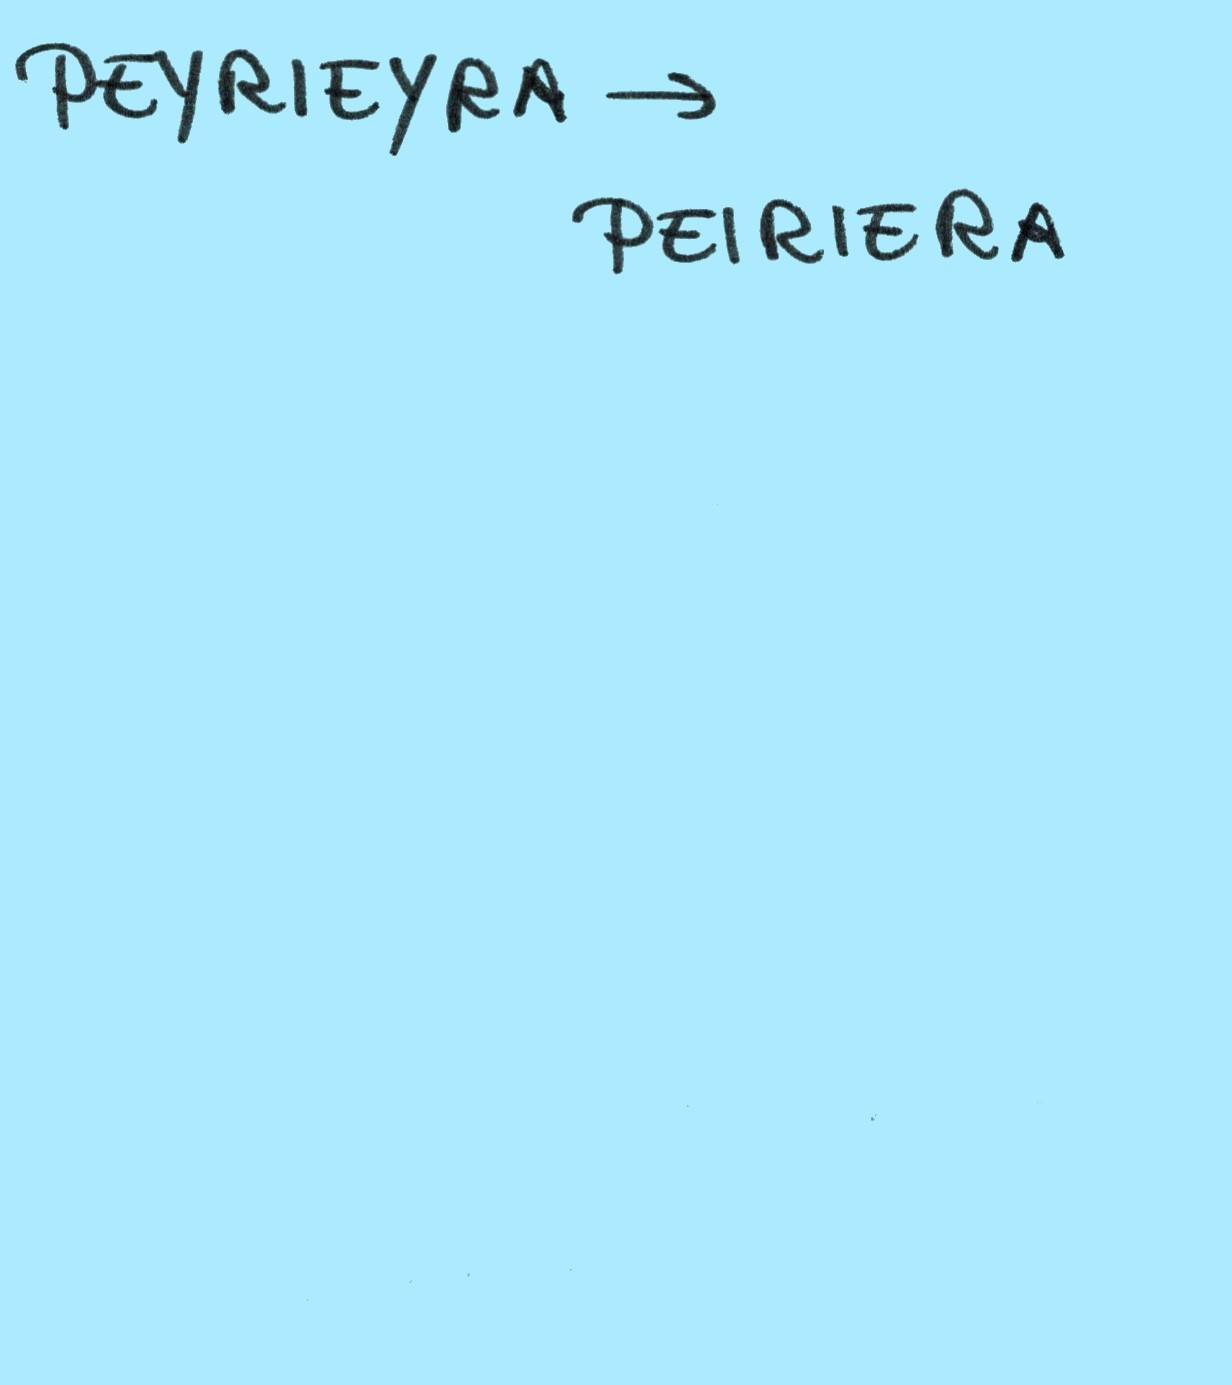 PEYRIEYRA →
PEIRIERA